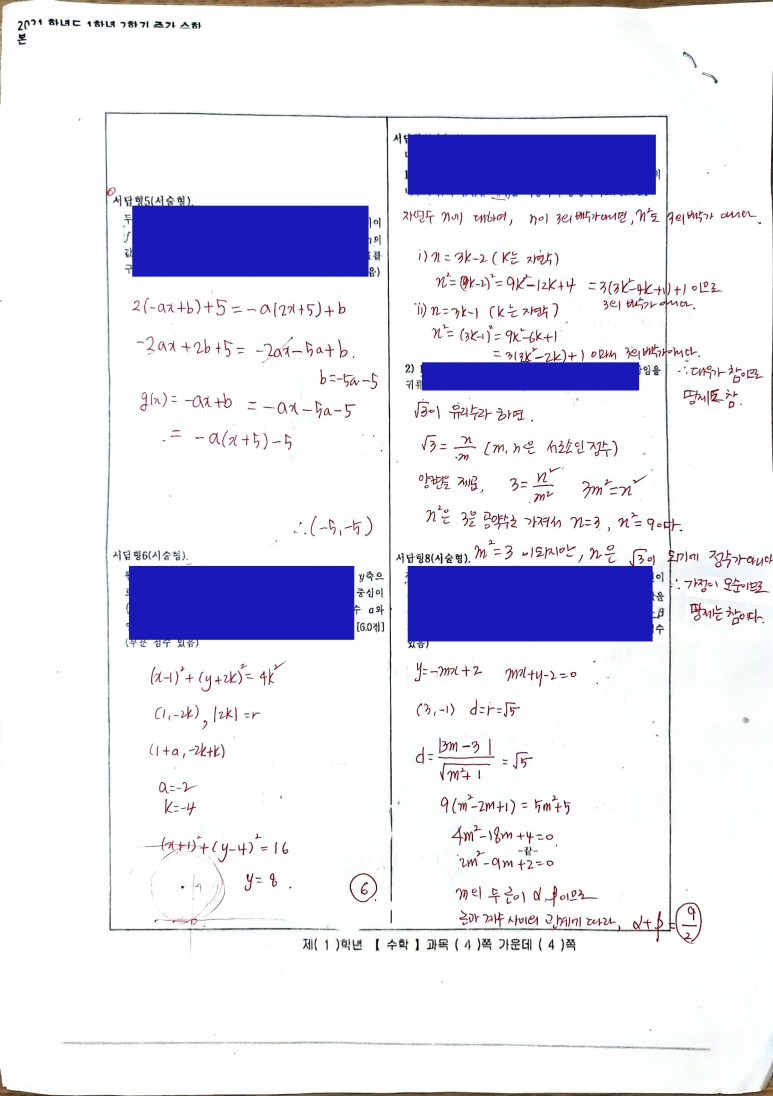 본
서답형5(서술형).
2(-ax+b)+5=-a(2x+5)+b
-2ax+2b+5=-2ax-5a+b.
b=-5a-5
g(x)=-ax+b=-ax-5a-5
=-a(x+5)-5
∴(-5,-5)
서답형6(서술형).
y축으
중심이
수 a와
[6.0점]
(부분 점수 있음)
(x-1)²+(y+2k)²=4k²
(1,-2k), |2k|=r
(1+a,-2k+k)
a=-2
k=-4
(x+1)²+(y-4)²=16
4
y=8.
6
자연수 n에 대하여, n이 3의 배수가 아니면, n²도 3의 배수가 아니다.
i) n=3k-2 (k는 자연수)
n²=(3k-2)²=9k²-12k+4 =3(3k²-4k+1)+1 이므로
3의 배수가 아니다.
ii) n=3k-1 (k는 자연수)
n²=(3k-1)²=9k²-6k+1
=3(3k²-2k)+1 이므로 3의 배수가 아니다.
∴대우가 참이므로
명제도 참.
2)
임을
√3이 유리수라 하면.
√3=n/m (m, n은 서로소인 정수)
양변을 제곱, 3=n²/m² 3m²=n²
n²은 3을 공약수로 가져서 n=3, n²=9이다.
m²=3 이 되지만, n은 √3이 되기에 정수가 아니다
∴가정이 모순이므로
명제는 참이다.
서답형8(서술형).
있음)
y=-mx+2 mx+y-2=0
(3,-1) d=r=√5
d=|3m-3|/√m²+1=√5
9(m²-2m+1)=5m²+5
4m²-18m+4=0
-끝-
2m²-9m+2=0
m의 두 근이 α,β이므로
근과 계수 사이의 관계에 따라, α+β=9/2
제( 1 )학년 【 수학 】 과목 ( 4 )쪽 가운데 ( 4 )쪽